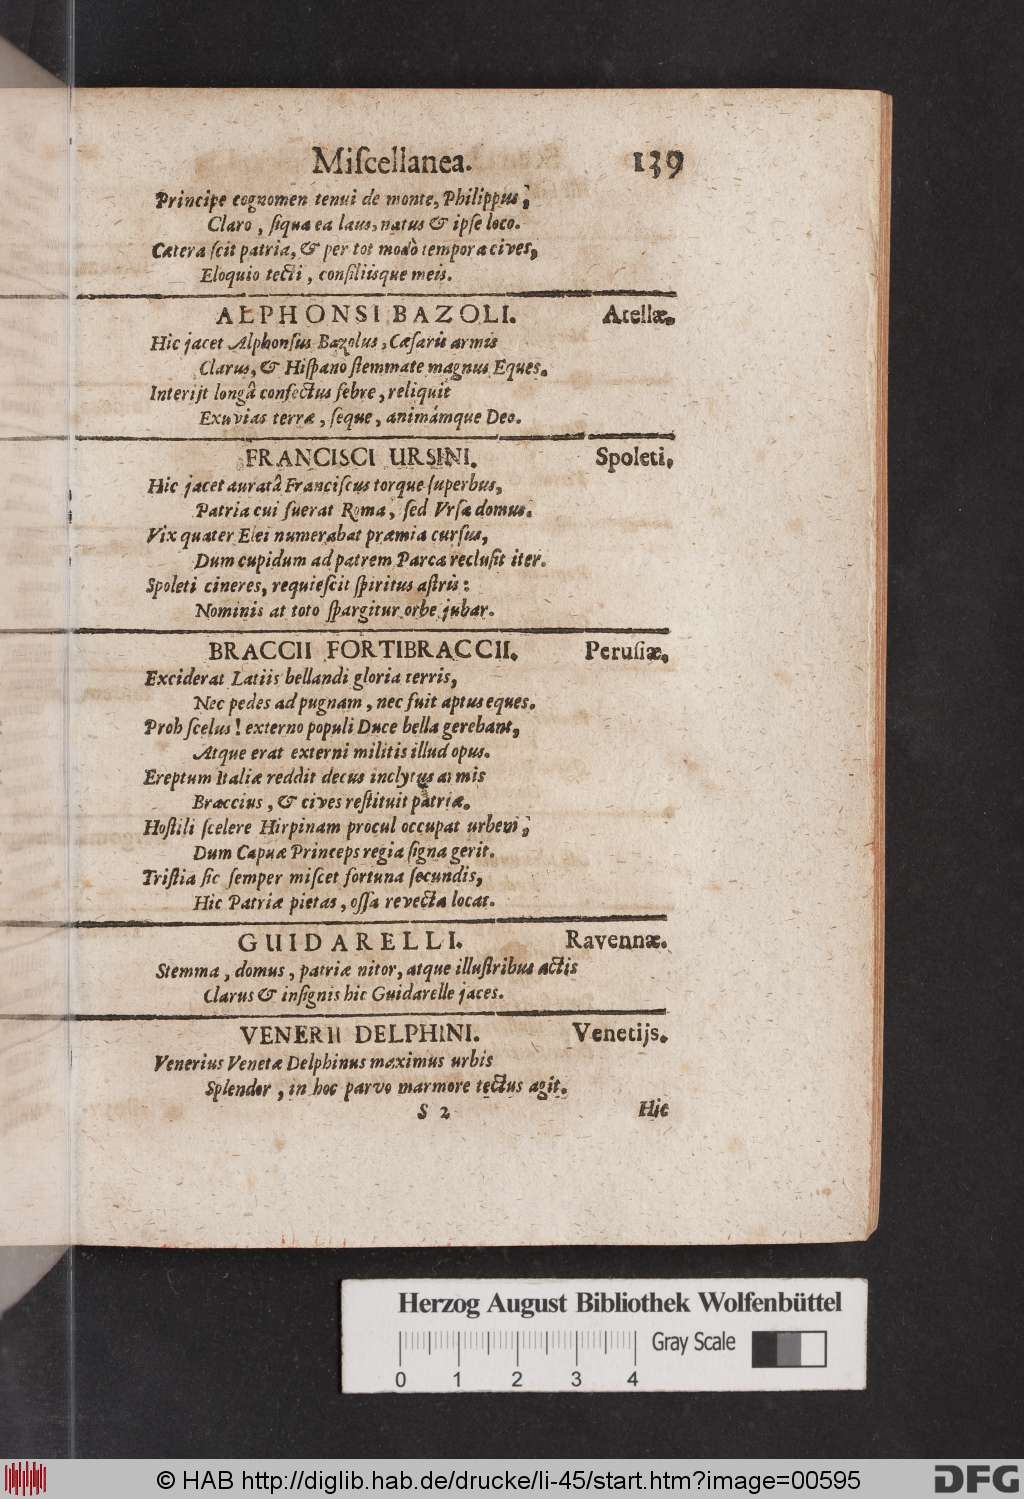 Miſcellanea. 139
Principe cognomen tenui de monte, Philippus;
Claro, ſiqua ea laus, natus & ipſe loco.
Cætera ſcit patria, & per tot modò tempora cives,
Eloquio tecti, conſiliisque meis.
ALPHONSI BAZOLI. Atellæ.
Hic jacet Alphonſus Bazolus, Cæſaris armis
Clarus, & Hiſpano ſtemmate magnus Eques.
Interijt longâ confectus febre, reliquit
Exuvias terræ, ſeque, animámque Deo.
FRANCISCI URSINI. Spoleti.
Hic jacet auratâ Franciſcus torque ſuperbus,
Patria cui fuerat Roma, ſed Vrſa domus.
Vix quater Elei numerabat præmia curſus,
Dum cupidum ad patrem Parca recluſit iter.
Spoleti cineres, requieſcit ſpiritus aſtris:
Nominis at toto ſpargitur orbe jubar.
BRACCII FORTIBRACCII. Peruſiæ.
Exciderat Latiis bellandi gloria terris,
Nec pedes ad pugnam, nec fuit aptus eques.
Proh ſcelus! externo populi Duce bella gerebant,
Atque erat externi militis illud opus.
Ereptum Italiæ reddit decus inclytus armis
Braccius, & cives reſtituit patriæ.
Hoſtili ſcelere Hirpinam procul occupat urbem;
Dum Capuæ Princeps regia ſigna gerit.
Triſtia ſic ſemper miſcet fortuna ſecundis,
Hic Patriæ pietas, oſſa revecta locat.
GUIDARELLI. Ravennæ.
Stemma, domus, patriæ nitor, atque illuſtribus actis
Clarus & inſignis hic Guidarelle jaces.
VENERII DELPHINI. Venetijs.
Venerius Venetæ Delphinus maximus urbis
Splendor, in hoc parvo marmore tectus agit.
S 2 Hic
Herzog August Bibliothek Wolfenbüttel
Gray Scale
0 1 2 3 4
© HAB http://diglib.hab.de/drucke/li-45/start.htm?image=00595 DFG